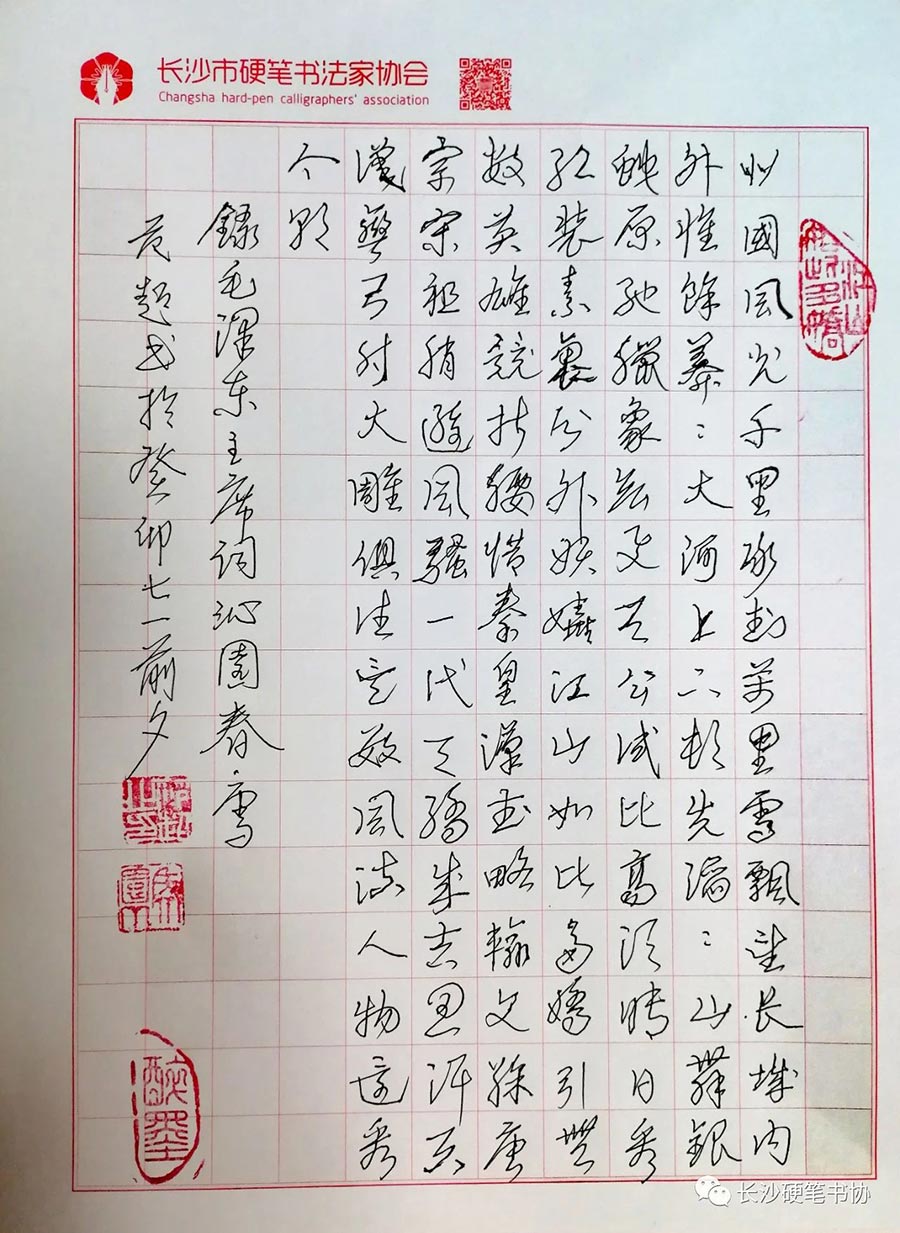 长沙市硬笔书法家协会
Changsha hard-pen calligraphers' association
北國風光千里冰封萬里雪飄望长城内
外惟餘莽〻大河上下頓失滔〻山舞銀
蛇原驰臘象欲与天公试比高须晴日看
红装素裹分外妖嬈江山如此多嬌引無
數英雄競折腰惜秦皇漢武略輸文採唐
宗宋祖稍遜風騷一代天驕成吉思汗只
識彎弓射大雕俱往矣數風流人物還看
今朝
錄毛澤东主席词沁園春·雪
范超书於癸卯七一前夕
醉墨
长沙硬笔书协